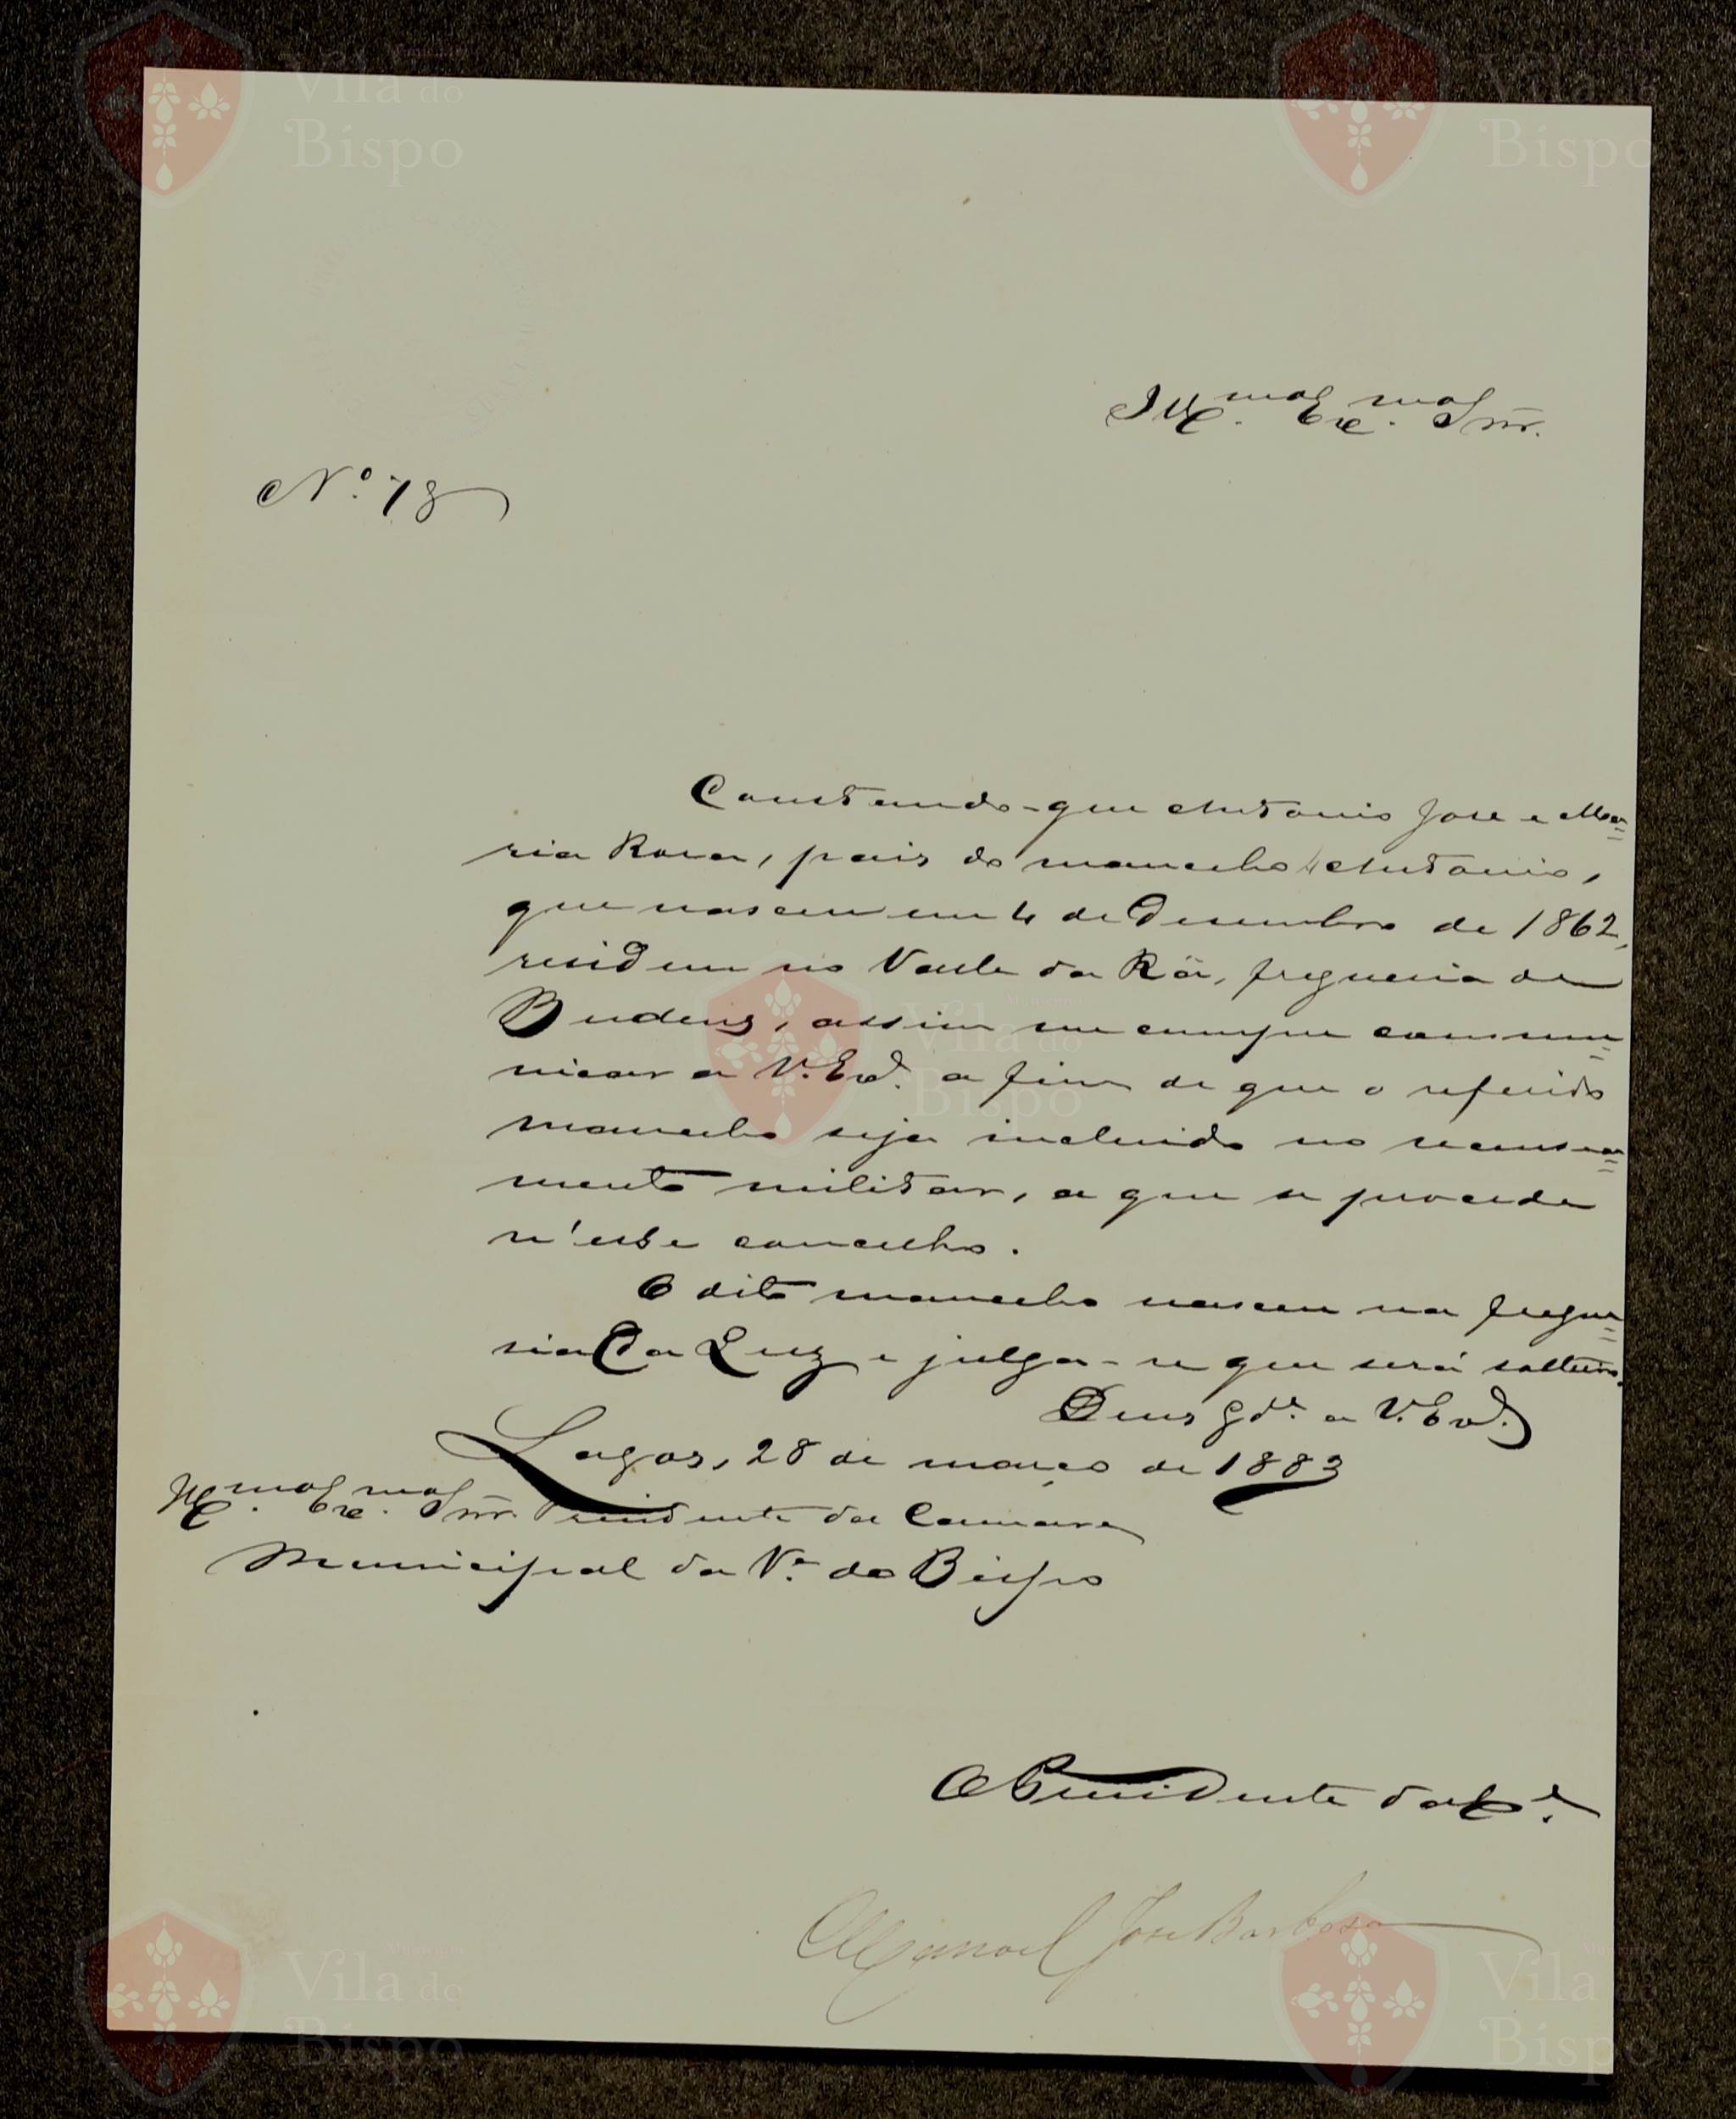 Ill.mo Ex.mo Snr.
N.º 78
Constando-que Antonio José e Ma=
ria Rosa, pais do mancebo Antonio,
que nasceu em 4 de Desembro de 1862,
residem no Valle da Rã, freguesia de
Budens, assim me cumpre commu=
nicar a V. Ex.ª a fim de que o referido
mancebo seja incluido no recensea=
mento militar, a que se procede
n'esse concelho.
O dito mancebo nasceu na fregue=
sia da Luz e julga-se que será solteiro.
Deus G.de a V. Ex.ª
Lagos, 28 de março de 1883
Ill.mo Ex.mo Snr. Presidente da Camara
Municipal da V.ª do Bispo
O Presidente da C.ª
Manoel José Barbosa
Vila do
Bispo